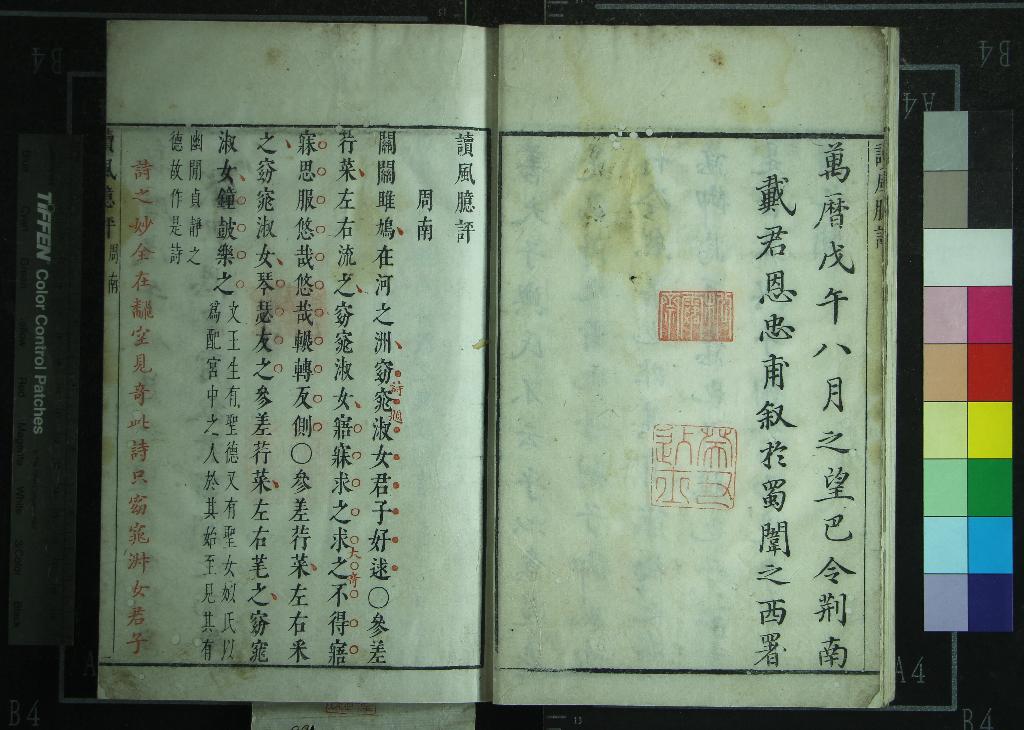 萬曆戊午八月之望巴令荆南
戴君恩忠甫叙於蜀闈之西署
讀風臆評
周南
關關雎鳩在河之洲窈窕淑女君子好逑〇參差
荇菜左右流之窈窕淑女寤寐求之求之不得寤
寐思服悠哉悠哉輾轉反側〇參差荇菜左右采
之窈窕淑女琴瑟友之參差荇菜左右芼之窈窕
淑女鐘鼓樂之
文王生有聖德又有聖女姒氏以
爲配宮中之人於其始至見其有
幽閒貞靜之
德故作是詩
詩之妙全在翻空見奇此詩只窈窕淑女君子
讀風臆評 周南
大奇
Tiffen Color Control Patches
B4
A4
B4
A4
B4